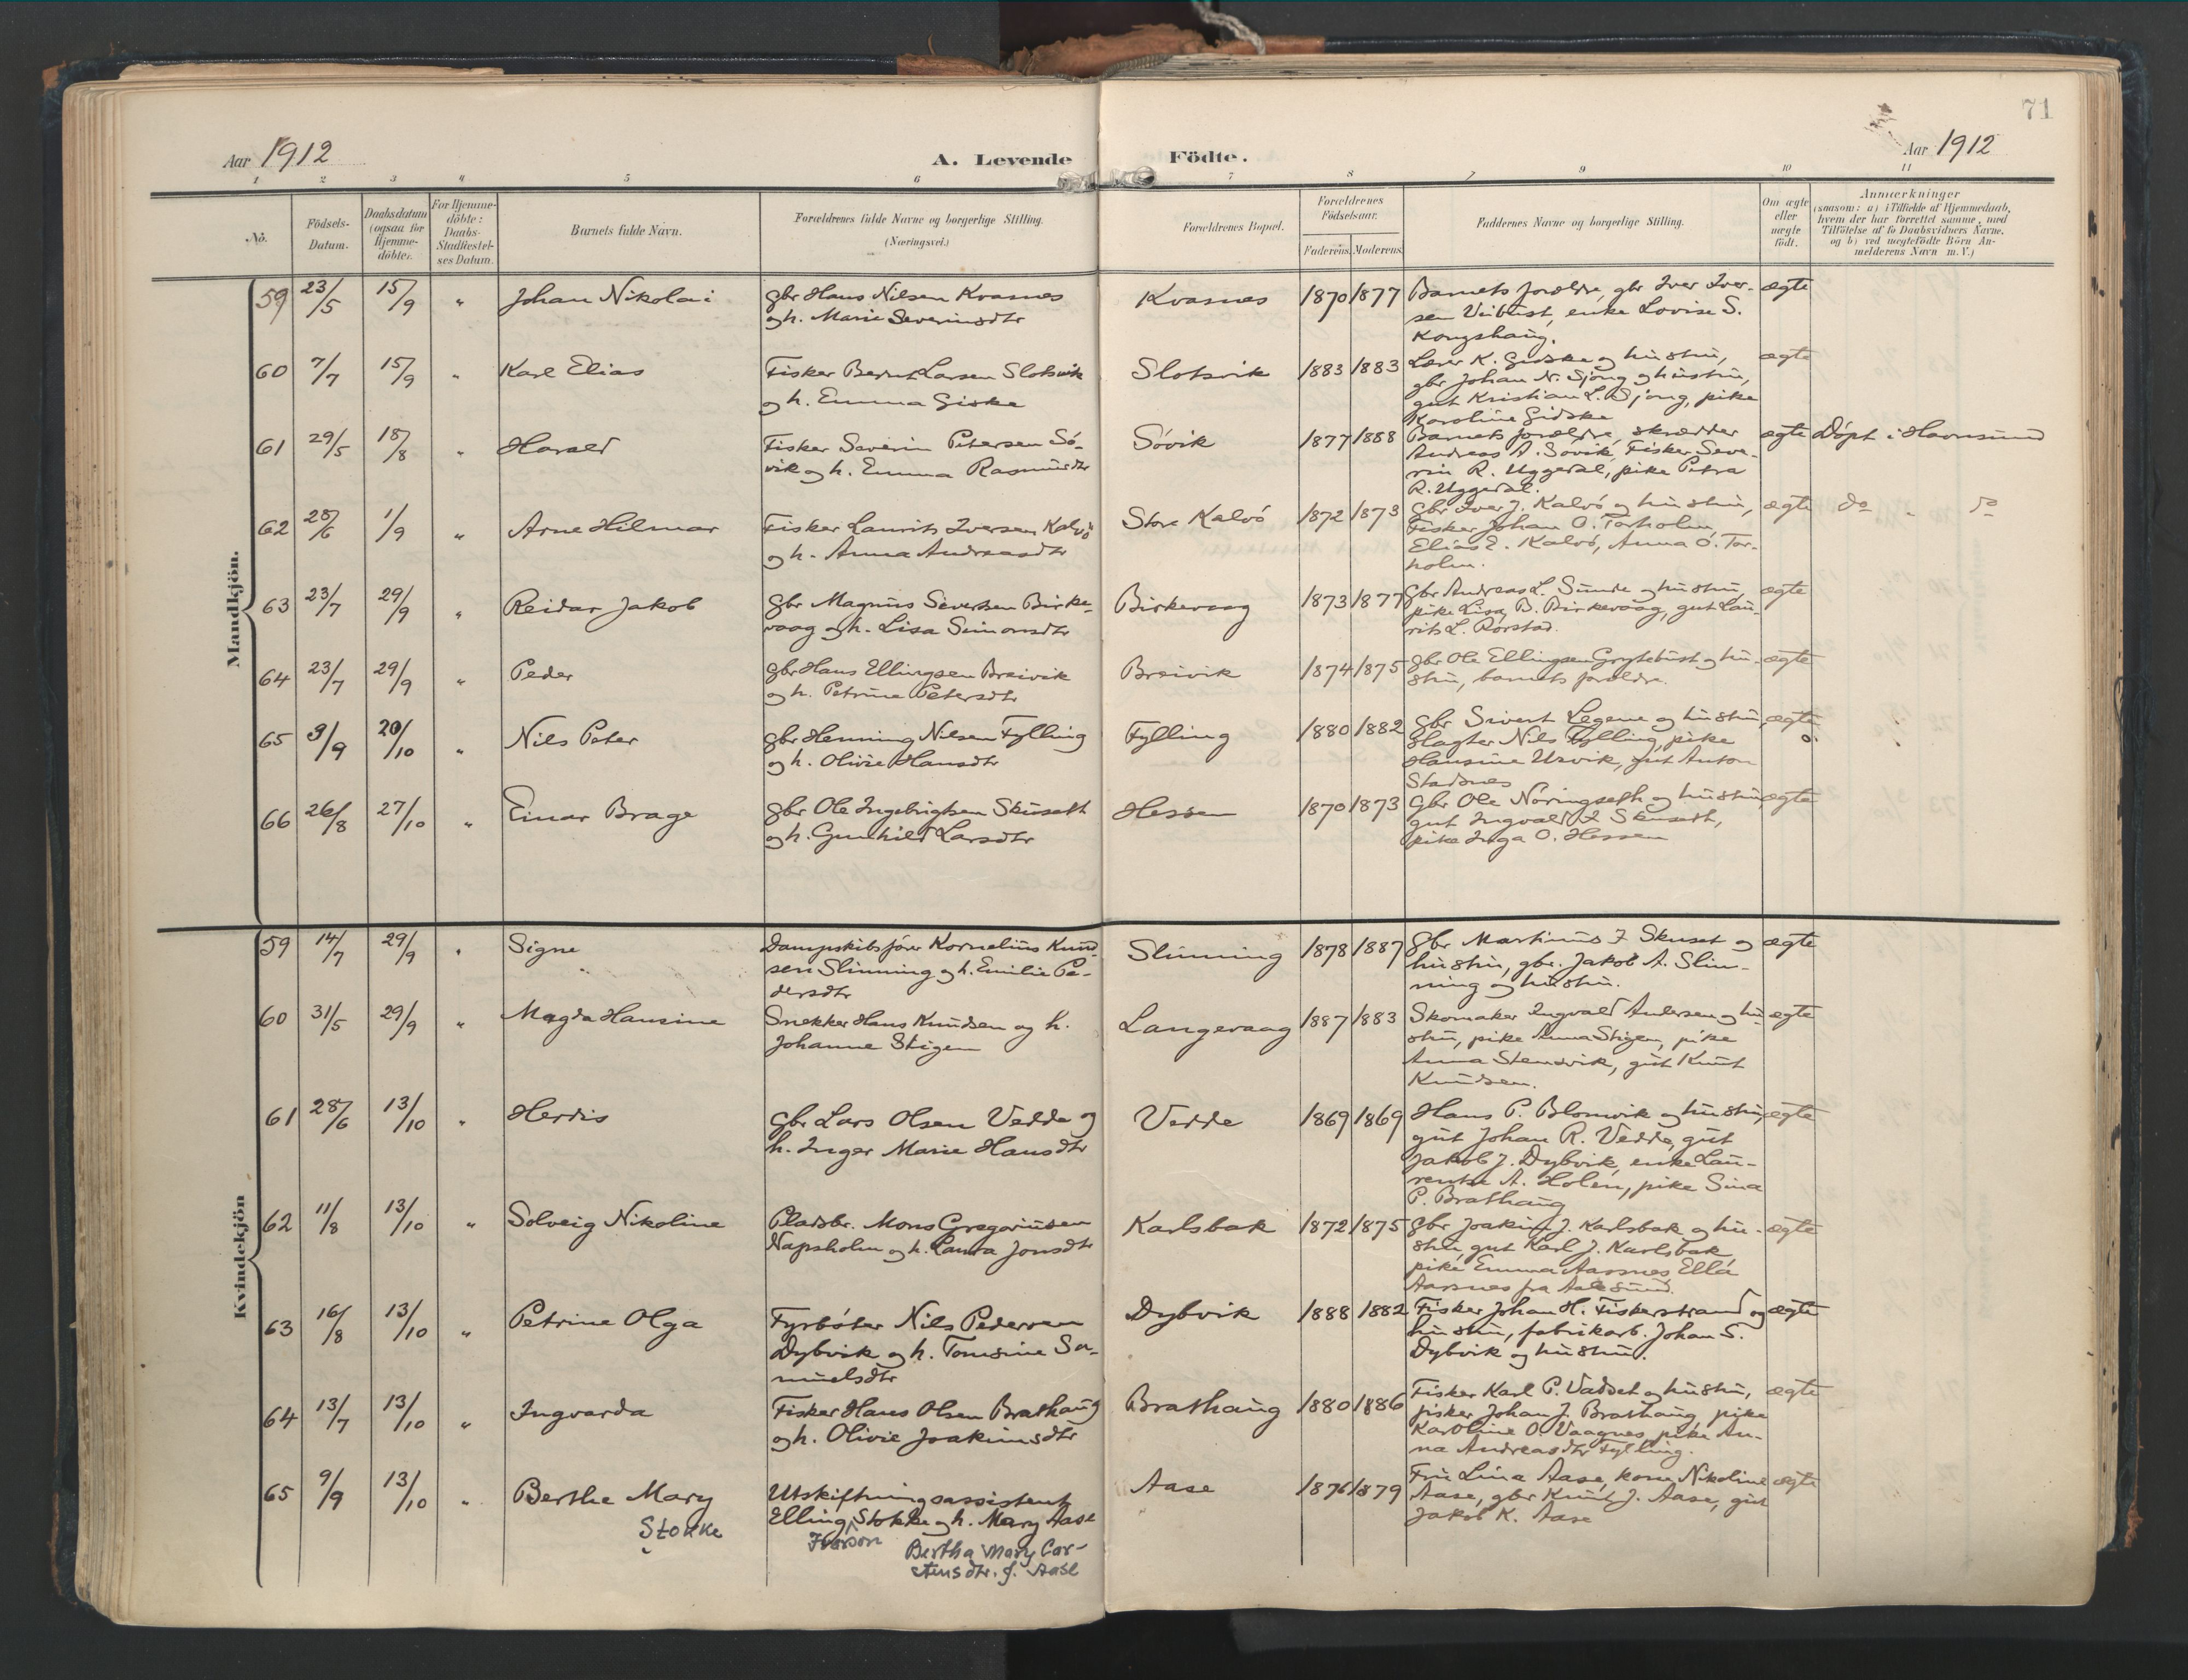 71
Aar 1912
A. Levende Födte.
Aar 1912
1 2 3 4 5 6 7 8 9 10 11
No.
Födsels-
Datum.
Daabsdatum
(ogsaa for
Hjemme-
döbte).
For Hjemme-
döbte:
Daabs-
Stadfæstel-
ses Datum.
Barnets fulde Navn.
Forældrenes fulde Navne og borgerlige Stilling.
(Næringsvei.)
Forældrenes Bopæl.
Forældrenes
Födselsaar.
Faderens. Moderens.
Faddernes Navne og borgerlige Stilling.
Om ægte
eller
uægte
födt.
Anmærkninger
(saasom: a) i Tilfælde af Hjemmedaab,
hvem der har forrettet samme, med
Tilföielse af to Daabsvidners Navne,
og b) ved uægtefödte Börn An-
melderens Navn m.V.)
Mandkjön.
59 23/5 15/9 " Johan Nikolai
gbr Hans Nilsen Kvasnes
og h. Marie Severinsdtr
Kvasnes 1870 1877
Barnets forældre, gbr Iver Iver-
sen Veibust, enke Lovise S.
Kongshaug.
ægte
60 7/7 15/9 " Karl Elias
Fisker Bernt Larsen Slotsvik
og h. Emma Giske
Slotsvik 1883 1883
Lærer K. Gidske og hustru,
gbr Johan N. Sjong og hustru,
gut Kristian L. Sjong, pike
Karoline Gidske
ægte
61 29/5 18/8 " Harald
Fisker Severin Petersen Sö-
vik og h. Emma Rasmusdtr
Sövik 1877 1888
Barnets forældre, skrædder
Andreas A. Sövik, Fisker Seve-
rin R. Uggedal, pike Petra
R. Uggedal.
ægte Döpt i Havnsund
62 28/6 1/9 " Arne Hilmar
Fisker Laurits Iversen Kalvö
og h. Anna Andreasdtr
Store Kalvö 1872 1873
Gbr Iver J. Kalvö og hustru,
Fisker Johan O. Torholm,
Elias E. Kalvö, Anna O. Tor-
holm.
ægte do " do
63 23/7 29/9 " Reidar Jakob
Gbr Magnus Severtsen Birke-
vaag og h. Lisa Simonsdtr
Birkevaag 1873 1877
gbr Andreas L. Sunde og hustru,
pike Lisa B. Birkevaag, gut Lau-
rits L. Rörstad.
ægte
64 23/7 29/9 " Peder
gbr Hans Ellingsen Breivik
og h. Petrine Petersdtr
Breivik 1874 1875
gbr Ole Ellingsen Grytebust og hu-
stru, barnets forældre.
ægte
65 9/9 20/10 " Nils Peter
gbr Henning Nilsen Fylling
og h. Olivie Hansdtr
Fylling 1880 1882
Gbr Sivert Legene og hustru,
Slagter Nils Fylling, pike
Hansine Urvik, gut Anton
Stadsnes
ægte
66 26/8 27/10 " Einar Brage
gbr Ole Ingebrigtsen Skuseth
og h. Gunhild Larsdtr
Hessen 1870 1873
Gbr Ole Nöringseth og hustru,
gut Ingvald I Skuseth,
pike Inga O. Hessen
ægte
Kvindekjön
59 14/7 29/9 " Signe
Dampskibsförer Kornelius Knud-
sen Slinning og h. Emilie Pe-
dersdtr
Slinning 1878 1887
gbr Martinus I Skuset og
hustru, gbr. Jakob A. Slin-
ning og hustru.
ægte
60 31/5 29/9 " Magda Hansine
Snekker Hans Knudsen og h.
Johanne Stigen
Langevaag 1887 1883
Skomaker Ingvald Andersen og hu-
stru, pike Anna Stigen, pike
Anna Stensvik, gut Knut
Knudsen.
ægte
61 28/6 13/10 " Herdis
gbr Lars Olsen Vedde og
h. Inger Marie Hansdtr
Vedde 1869 1869
Hans P. Blomvik og hustru,
gut Johan R. Vedde, gut
Jakob J. Dybvik, enke Lau-
rentse A. Holen, pike Sina
P. Brathaug
ægte
62 11/8 13/10 " Solveig Nikoline
Pladsbr. Mons Gregoriusen
Napsholm og h. Laura Jonsdtr
Karlsbak 1872 1875
gbr Joakim J. Karlsbak og hu-
stru, gut Karl J. Karlsbak,
pike Emma Aarsnes, Ella
Aarsnes fra Aalesund.
ægte
63 16/8 13/10 " Petrine Olga
Fyrböter Nils Pedersen
Dybvik og h. Tomsine Sa-
muelsdtr
Dybvik 1888 1882
Fisker Johan H. Fiskerstrand og
hustru, fabrikarb. Johan S.
Dybvik og hustru.
ægte
64 13/7 13/10 " Ingvarda
Fisker Hans Olsen Brathaug
og h. Olivie Joakimsdtr
Brathaug 1880 1886
Fisker Karl P. Vadset og hustru,
fisker Johan J. Brathaug, pike
Karoline O. Vaagnes, pike An-
na Andreasdtr Fylling.
ægte
65 9/9 13/10 " Berthe Mary
Stokke
Utskiftningsassistent
Elling Stokke og h. Mary Aase
Iverson Bertha Mary Car-
stensdtr. f. Aase
Aase 1876 1879
Fru Lina Aase, kone Nikoline
Aase, gbr Knut J. Aase, gut
Jakob K. Aase
ægte